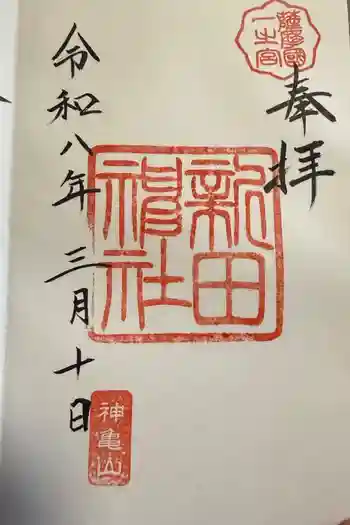 薩摩國
一之宮
奉拝
新田
神社
令和八年三月十日
神亀山